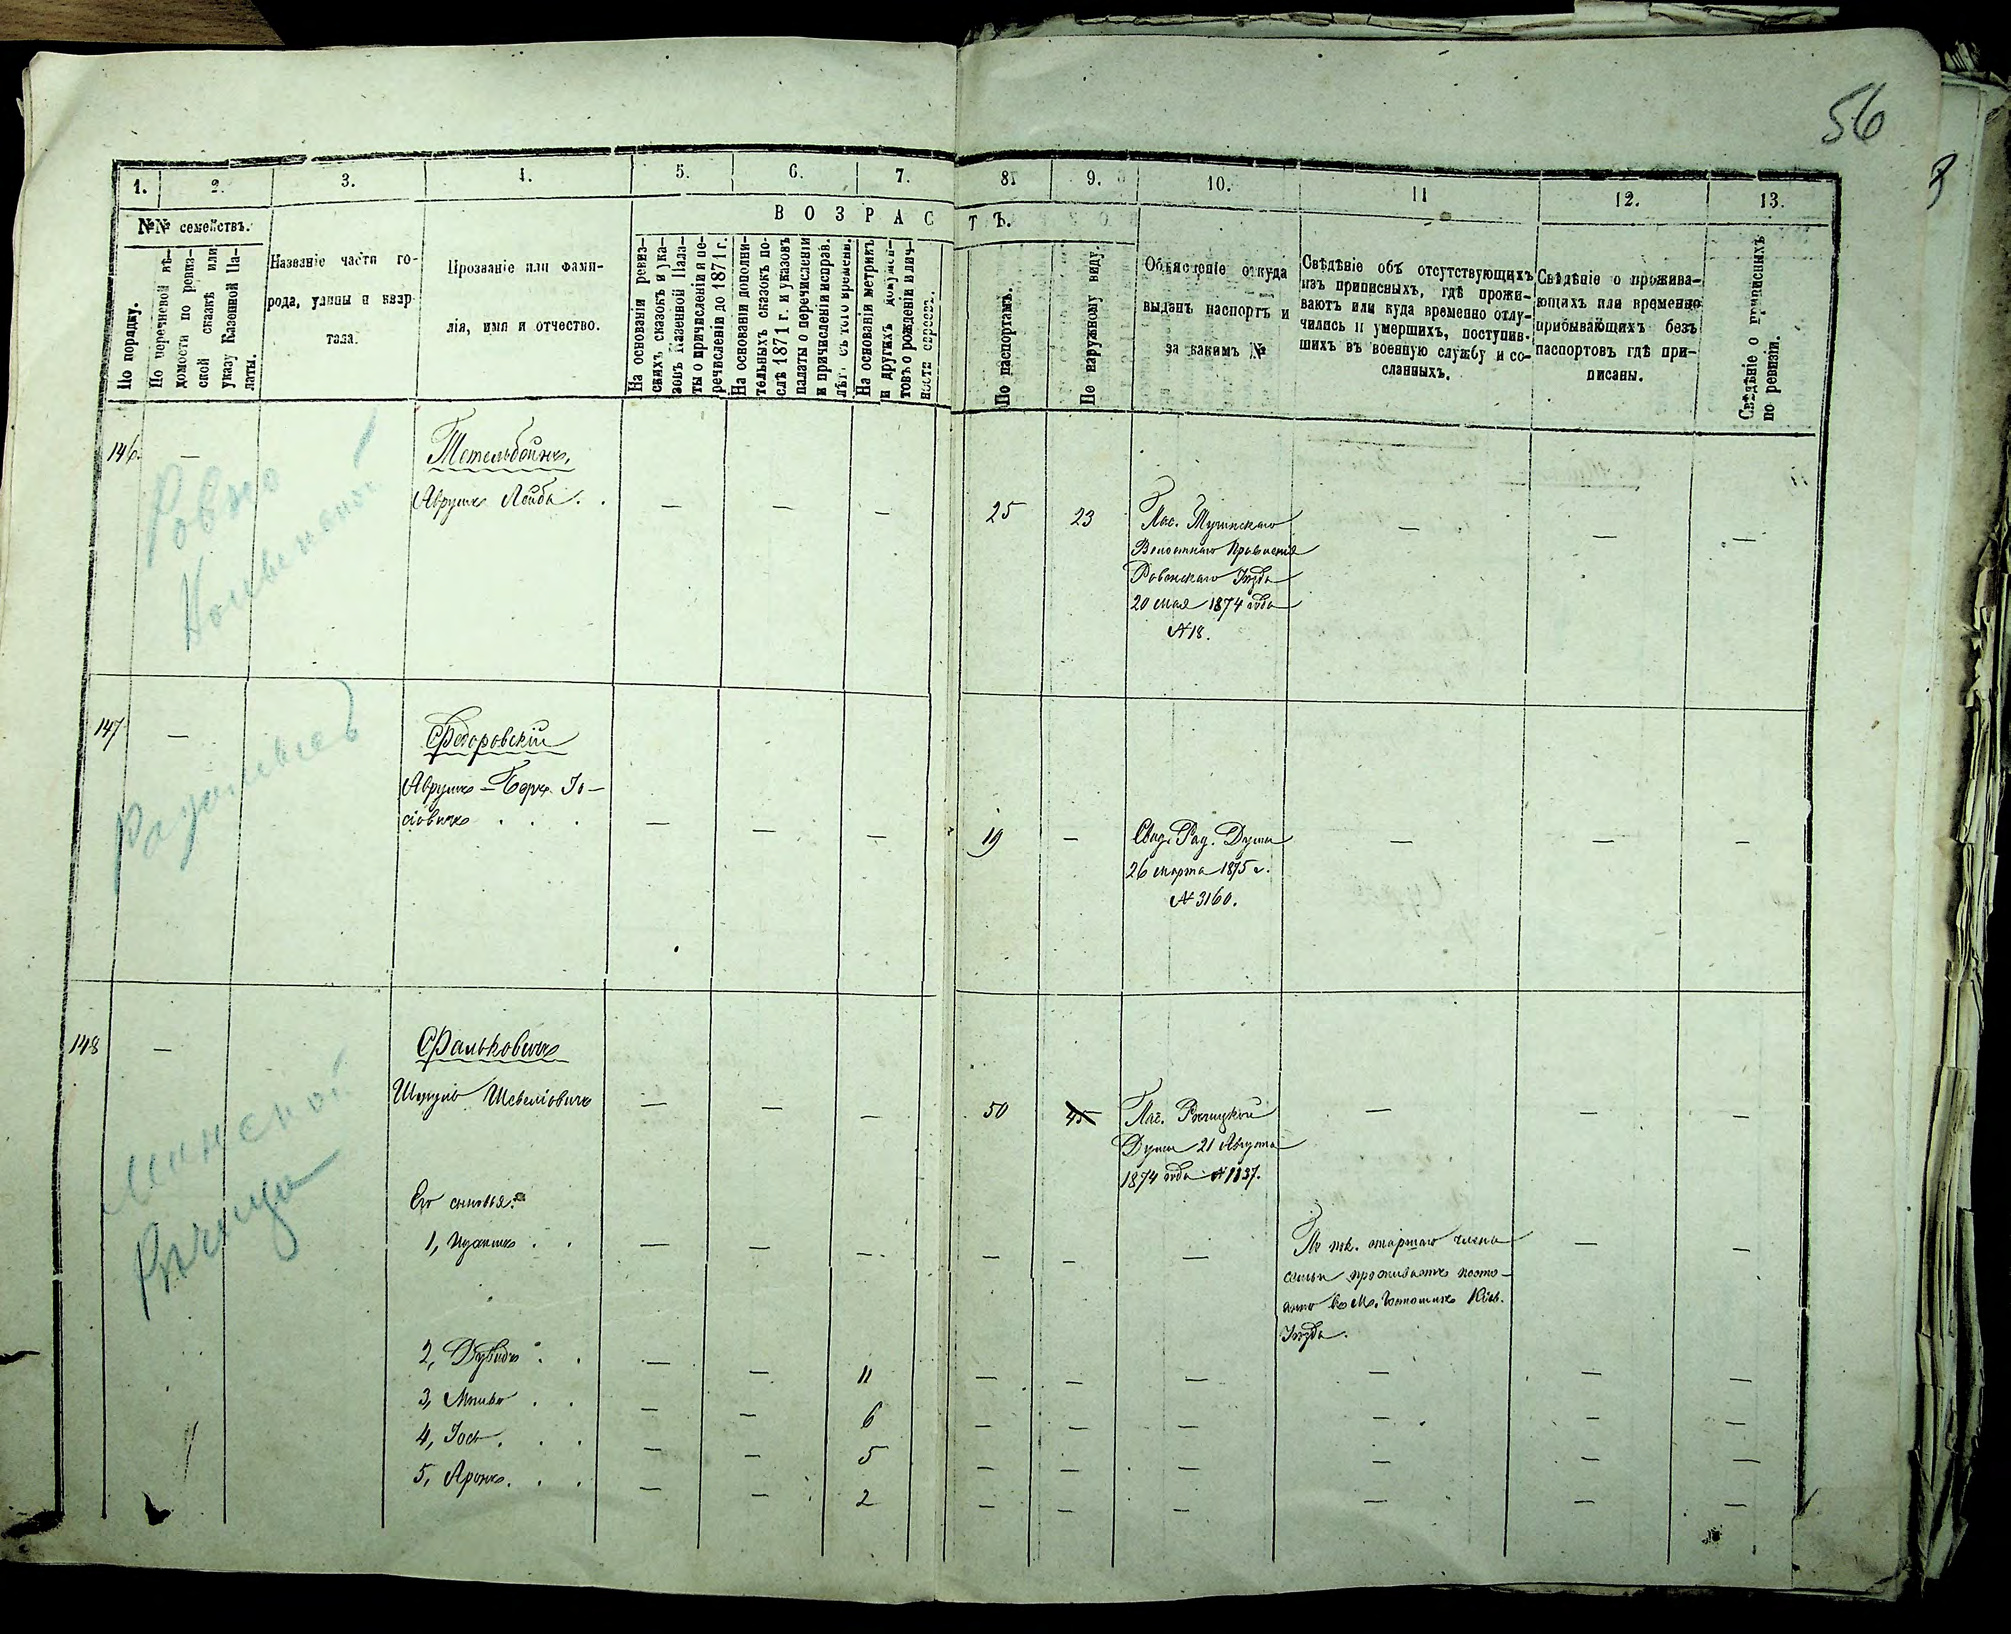 56
1. 2. 3. 4. 5. 6. 7. 8. 9. 10. 11 12. 13.
№№ семействъ.
В О З Р А С Т Ъ.
По порядку.
По перечневой вѣ-
домости по ревиз-
ской сказкѣ или
указу Казенной Па-
латы.
Названіе части го-
рода, улицы и квар-
тала.
Прозваніе или фами-
лія, имя и отчество.
На основаніи ревиз-
скихъ сказокъ и ука-
зовъ Казенной Пала-
ты о причисленіи и пе-
речисленіи до 1871 г.
На основаніи дополни-
тельныхъ сказокъ по-
слѣ 1871 г. и указовъ
палаты о перечисленіи
и причисленіи исправ.
лѣтъ съ того времени.
На основаніи метрикъ
и другихъ докумен-
товъ о рожденіи и лич-
ности
По паспортамъ.
По наружному виду.
Объясненіе откуда
выданъ паспортъ и
за какимъ №
Свѣдѣніе объ отсутствующихъ
изъ приписныхъ, гдѣ прожи-
ваютъ или куда временно отлу-
чились и умершихъ, поступив-
шихъ въ военную службу и со-
сланныхъ.
Свѣдѣніе о прожива-
ющихъ или временно
прибывающихъ безъ
паспортовъ гдѣ при-
писаны.
Свѣдѣніе о приписныхъ
по ревизіи.
146. — Тетельбаумъ,
Аврумъ Лейба . . — — — 25 23 Пас. Тучинскаго — — —
Волостнаго Правленія
Ровенскаго Уѣзда
20 мая 1874 года
№ 18.
Ровно
147 — Федоровскій
Аврумъ-Берк. Іо-
сіовичъ . . . — — — 19 — Свид. Рад. Думы — — —
26 марта 1875 г.
№ 3160.
Радомысль
148 — Фальковичъ
Шмуль Шевеліовичъ — — — 50 45 Пас. Рѣчицкой — —
Думы 21 Августа
1874 года № 1837.
Минской
Рѣчица
Его сыновья:
1, Ицхокъ . . — — — — — — По пок. старшаго члена — —
семьи проживаетъ посто-
янно въ М. Кіев.
Уѣзда.
2, Дувидъ . . — — 11 — — — — — —
3, Мошко . . — — 6 — — — — — —
4, Іось . . . — — 5 — — — — — —
5, Аронъ . . . — — 2 — — — — — —